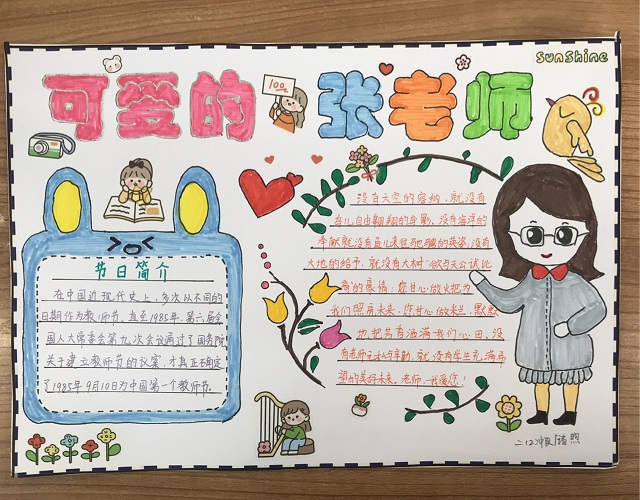 sunshine
可爱的张老师
100
节日简介
在中国近现代史上，多次以不同的
日期作为教师节。直至1985年，第六届全
国人大常委会第九次会议通过了国务院
关于建立教师节的议案，才真正确定
了1985年9月10日为中国第一个教师节。
没有天空的容纳，就没有
鸟儿自由翱翔的身影，没有海洋的
奉献就没有鱼儿来往的英姿，没有
大地的给予，就没有大树欲与天公试比
高的豪情；您甘心做火把为
我们照亮未来，您甘心做来兰，默默
地把芬芳洒满我们心田，没
有老师无私的辛勤，就没有学生充满希
望的美好未来。老师，我爱您！
二（2）